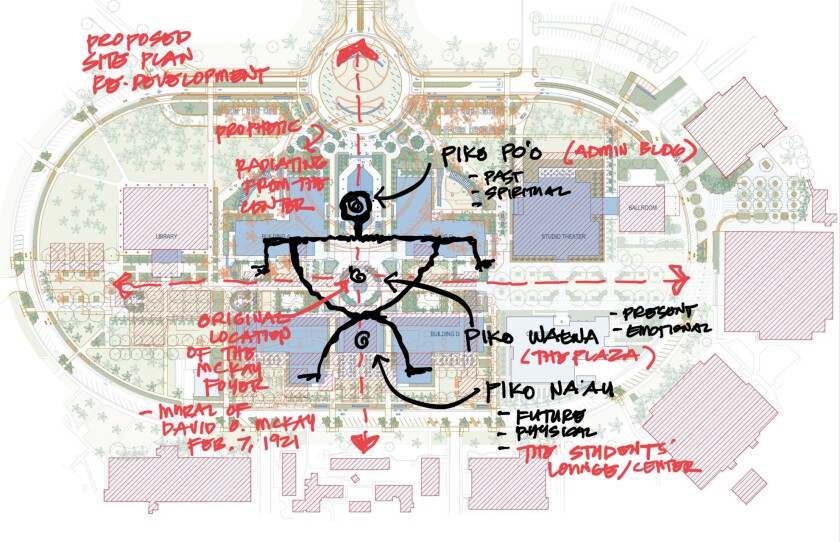 PROPOSED
SITE PLAN
RE-DEVELOPMENT
PROPHETIC
RADIATING
FROM THE
CENTER
PIKO PO'O (ADMIN BLDG)
- PAST
- SPIRITUAL
LIBRARY
BUILDING A
STUDIO THEATER
BALLROOM
ORIGINAL
LOCATION
OF THE
MCKAY
FOYER
- MURAL OF
DAVID O. MCKAY
FEB. 7, 1921
BUILDING D
PIKO WAENA
(THE PLAZA)
- PRESENT
- EMOTIONAL
PIKO NA'AU
- FUTURE
- PHYSICAL
- THE STUDENTS'
LOUNGE/CENTER